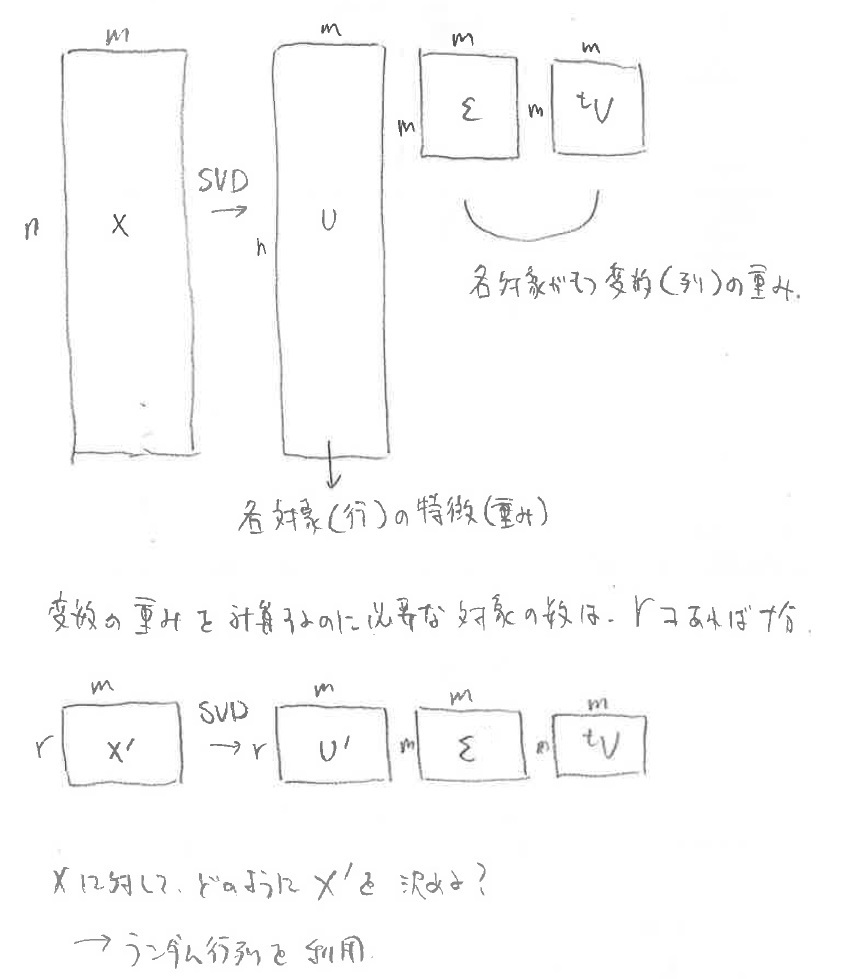 m
m
m
m
n
X
SVD
→
n
U
m
Σ
m
ᵗV
各対象がもつ変数(列)の重み.
各対象(行)の特徴(重み)
変数の重みを計算するのに必要な対象の数は、rコあれば十分.
m
m
m
m
r
X'
SVD
→
r
U'
m
Σ
m
ᵗV
Xに対して、どのようにX'を決める?
→ランダム行列を利用.